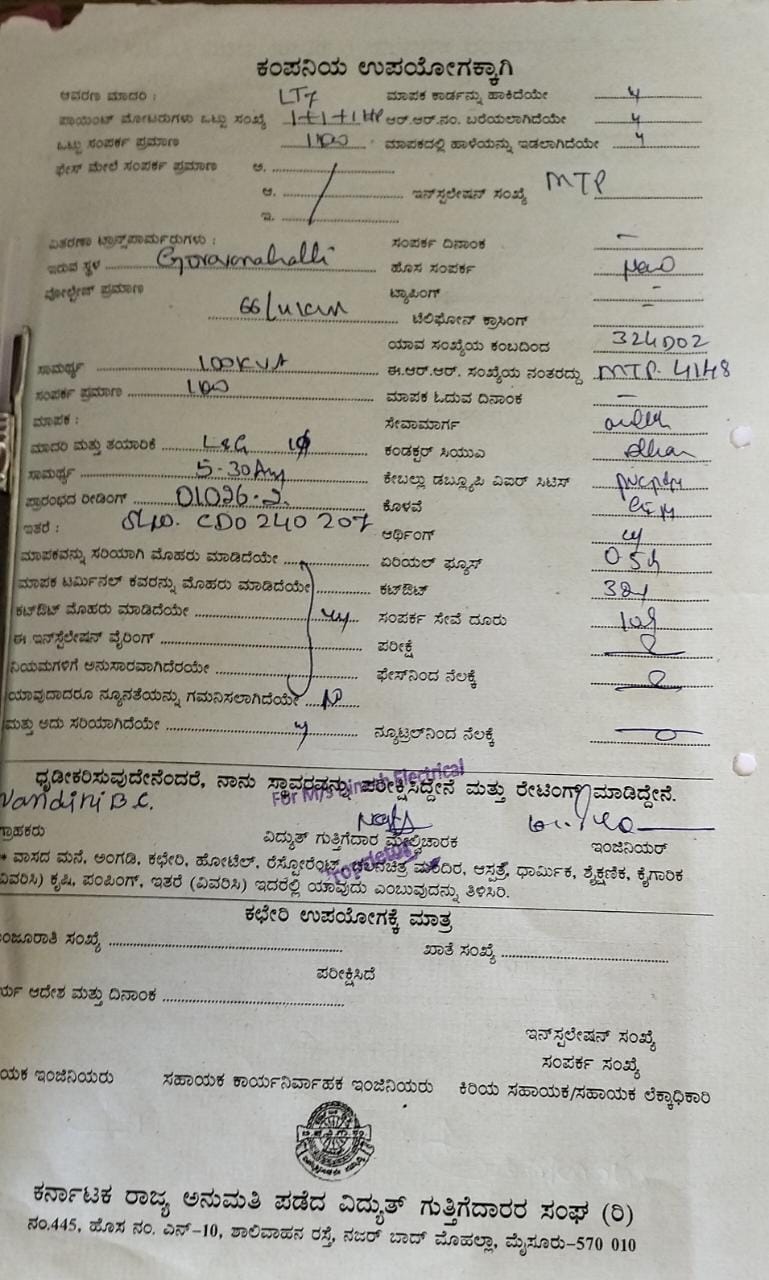 ಕಂಪನಿಯ ಉಪಯೋಗಕ್ಕಾಗಿ
ಆವರಣ ಮಾದರಿ : LT7 ಮಾಪಕ ಕಾರ್ಡನ್ನು ಹಾಕಿದೆಯೇ y
ಪಾಯಿಂಟ್ ಮೋಟರುಗಳು ಒಟ್ಟು ಸಂಖ್ಯೆ 1+1+1HP ಆರ್.ಆರ್.ನಂ. ಬರೆಯಲಾಗಿದೆಯೇ y
ಒಟ್ಟು ಸಂಪರ್ಕ ಪ್ರಮಾಣ ಮಾಪಕದಲ್ಲಿ ಹಾಳೆಯನ್ನು ಇಡಲಾಗಿದೆಯೇ y
ಫೇಸ್ ಮೇಲೆ ಸಂಪರ್ಕ ಪ್ರಮಾಣ ಅ.
ಆ. ಇನ್‌ಸ್ಟಲೇಷನ್ ಸಂಖ್ಯೆ MTP
ಇ.
ವಿತರಣಾ ಟ್ರಾನ್ಸ್‌ಫಾರ್ಮರುಗಳು : ಸಂಪರ್ಕ ದಿನಾಂಕ –
ಇರುವ ಸ್ಥಳ Goravanahalli ಹೊಸ ಸಂಪರ್ಕ New
ವೋಲ್ಟೇಜ್ ಪ್ರಮಾಣ 66/11KV ಟ್ಯಾಪಿಂಗ್ –
ಟೆಲಿಫೋನ್ ಕ್ರಾಸಿಂಗ್ –
ಯಾವ ಸಂಖ್ಯೆಯ ಕಂಬದಿಂದ 324D02
ಸಾಮರ್ಥ್ಯ 100KVA ಈ.ಆರ್.ಆರ್. ಸಂಖ್ಯೆಯ ನಂತರದ್ದು MTP. 4148
ಸಂಪರ್ಕ ಪ್ರಮಾಣ ಮಾಪಕ ಓದುವ ದಿನಾಂಕ –
ಮಾಪಕ : ಸೇವಾಮಾರ್ಗ
ಮಾದರಿ ಮತ್ತು ತಯಾರಿಕೆ L&G 1φ ಕಂಡಕ್ಟರ್ ಸಿಯುಎ
ಸಾಮರ್ಥ್ಯ 5-30Am ಕೇಬಲ್ಲು ಡಬ್ಲ್ಯೂಪಿ ವಿಐರ್ ಸಿಟಿಸ್
ಪ್ರಾರಂಭದ ರೀಡಿಂಗ್ 01026.2 ಕೊಳವೆ
ಇತರೆ : Sl.no. CD0 240 207 ಆರ್ಥಿಂಗ್ y
ಮಾಪಕವನ್ನು ಸರಿಯಾಗಿ ಮೊಹರು ಮಾಡಿದೆಯೇ ಏರಿಯಲ್ ಫ್ಯೂಸ್
ಮಾಪಕ ಟರ್ಮಿನಲ್ ಕವರನ್ನು ಮೊಹರು ಮಾಡಿದೆಯೇ ಕಟ್‌ಔಟ್
ಕಟ್‌ಔಟ್ ಮೊಹರು ಮಾಡಿದೆಯೇ ಸಂಪರ್ಕ ಸೇವೆ ದೂರು
ಈ ಇನ್‌ಸ್ಟೆಲೇಷನ್ ವೈರಿಂಗ್ ಪರೀಕ್ಷೆ
ನಿಯಮಗಳಿಗೆ ಅನುಸಾರವಾಗಿದೆರಯೇ ಫೇಸ್‌ನಿಂದ ನೆಲಕ್ಕೆ
ಯಾವುದಾದರೂ ನ್ಯೂನತೆಯನ್ನು ಗಮನಿಸಲಾಗಿದೆಯೇ N
ಮತ್ತು ಅದು ಸರಿಯಾಗಿದೆಯೇ y ನ್ಯೂಟ್ರಲ್‌ನಿಂದ ನೆಲಕ್ಕೆ
ಧೃಡೀಕರಿಸುವುದೇನೆಂದರೆ, ನಾನು ಸ್ಥಾವರವನ್ನು ಪರೀಕ್ಷಿಸಿದ್ದೇನೆ ಮತ್ತು ರೇಟಿಂಗ್ ಮಾಡಿದ್ದೇನೆ.
For M/s Electrical
Nandini B.C.
ಗ್ರಾಹಕರು ವಿದ್ಯುತ್ ಗುತ್ತಿಗೆದಾರ ಮೇಲ್ವಿಚಾರಕ ಇಂಜಿನಿಯರ್
* ವಾಸದ ಮನೆ, ಅಂಗಡಿ, ಕಛೇರಿ, ಹೋಟೆಲ್, ರೆಸ್ಟೋರೆಂಟ್, ಚಲನಚಿತ್ರ ಮಂದಿರ, ಆಸ್ಪತ್ರೆ, ಧಾರ್ಮಿಕ, ಶೈಕ್ಷಣಿಕ, ಕೈಗಾರಿಕ
ವಿವರಿಸಿ) ಕೃಷಿ, ಪಂಪಿಂಗ್, ಇತರೆ (ವಿವರಿಸಿ) ಇದರಲ್ಲಿ ಯಾವುದು ಎಂಬುವುದನ್ನು ತಿಳಿಸಿರಿ.
ಕಛೇರಿ ಉಪಯೋಗಕ್ಕೆ ಮಾತ್ರ
ಂಜೂರಾತಿ ಸಂಖ್ಯೆ ಖಾತೆ ಸಂಖ್ಯೆ
ಪರೀಕ್ಷಿಸಿದೆ
ರ್ಯ ಆದೇಶ ಮತ್ತು ದಿನಾಂಕ
ಇನ್‌ಸ್ಟಲೇಷನ್ ಸಂಖ್ಯೆ
ಸಂಪರ್ಕ ಸಂಖ್ಯೆ
ಯಕ ಇಂಜಿನಿಯರು ಸಹಾಯಕ ಕಾರ್ಯನಿರ್ವಾಹಕ ಇಂಜಿನಿಯರು ಕಿರಿಯ ಸಹಾಯಕ/ಸಹಾಯಕ ಲೆಕ್ಕಾಧಿಕಾರಿ
ಕರ್ನಾಟಕ ರಾಜ್ಯ ಅನುಮತಿ ಪಡೆದ ವಿದ್ಯುತ್ ಗುತ್ತಿಗೆದಾರರ ಸಂಘ (ರಿ)
ನಂ.445, ಹೊಸ ನಂ. ಎನ್–10, ಶಾಲಿವಾಹನ ರಸ್ತೆ, ನಜರ್ ಬಾದ್ ಮೊಹಲ್ಲಾ, ಮೈಸೂರು–570 010